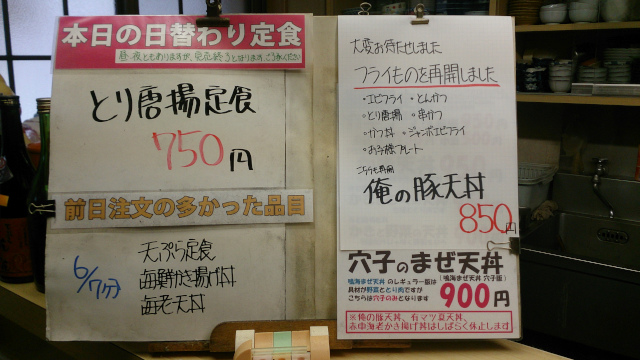 本日の日替わり定食
昼・夜ともありますが、完売終了となります。ごうかください
とり唐揚定食
750円
前日注文の多かった品目
6/7分
天ぷら定食
海鮮かき揚げ丼
海老天丼
大変お待たせしました
フライものを再開しました
・エビフライ ・とんかつ
・とり唐揚 ・串かつ
・かつ丼 ・ジャンボエビフライ
・お子様プレート
こちらも再開
俺の豚天丼
850円
穴子のまぜ天丼
鳴海まぜ天丼 のレギュラー版は (鳴海まぜ天丼 穴子版)
具材が野菜ととり肉ですが
こちらは穴子のみとなります
900円
※俺の豚天丼、有マツ夏天丼、
赤ゆ海老かき揚げ丼はしばらく休止します